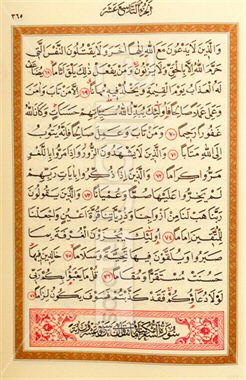 الجزء التاسع عشر
٣٦٥
وَالَّذِينَ لَا يَدْعُونَ مَعَ اللَّهِ إِلَٰهًا آخَرَ وَلَا يَقْتُلُونَ النَّفْسَ الَّتِي
حَرَّمَ اللَّهُ إِلَّا بِالْحَقِّ وَلَا يَزْنُونَ وَمَنْ يَفْعَلْ ذَٰلِكَ يَلْقَ أَثَامًا ٦٨ يُضَاعَفْ
لَهُ الْعَذَابُ يَوْمَ الْقِيَٰمَةِ وَيَخْلُدْ فِيهِ مُهَانًا ٦٩ إِلَّا مَنْ تَابَ وَآمَنَ
وَعَمِلَ عَمَلًا صَالِحًا فَأُولَٰئِكَ يُبَدِّلُ اللَّهُ سَيِّئَاتِهِمْ حَسَنَاتٍ وَكَانَ اللَّهُ
غَفُورًا رَحِيمًا ٧٠ وَمَنْ تَابَ وَعَمِلَ صَالِحًا فَإِنَّهُ يَتُوبُ
إِلَى اللَّهِ مَتَابًا ٧١ وَالَّذِينَ لَا يَشْهَدُونَ الزُّورَ وَإِذَا مَرُّوا بِاللَّغْوِ
مَرُّوا كِرَامًا ٧٢ وَالَّذِينَ إِذَا ذُكِّرُوا بِآيَاتِ رَبِّهِمْ
لَمْ يَخِرُّوا عَلَيْهَا صُمًّا وَعُمْيَانًا ٧٣ وَالَّذِينَ يَقُولُونَ
رَبَّنَا هَبْ لَنَا مِنْ أَزْوَاجِنَا وَذُرِّيَّاتِنَا قُرَّةَ أَعْيُنٍ وَاجْعَلْنَا
لِلْمُتَّقِينَ إِمَامًا ٧٤ أُولَٰئِكَ يُجْزَوْنَ الْغُرْفَةَ بِمَا
صَبَرُوا وَيُلَقَّوْنَ فِيهَا تَحِيَّةً وَسَلَامًا ٧٥ خَالِدِينَ فِيهَا
حَسُنَتْ مُسْتَقَرًّا وَمُقَامًا ٧٦ قُلْ مَا يَعْبَؤُا بِكُمْ رَبِّي
لَوْلَا دُعَاؤُكُمْ فَقَدْ كَذَّبْتُمْ فَسَوْفَ يَكُونُ لِزَامًا ٧٧